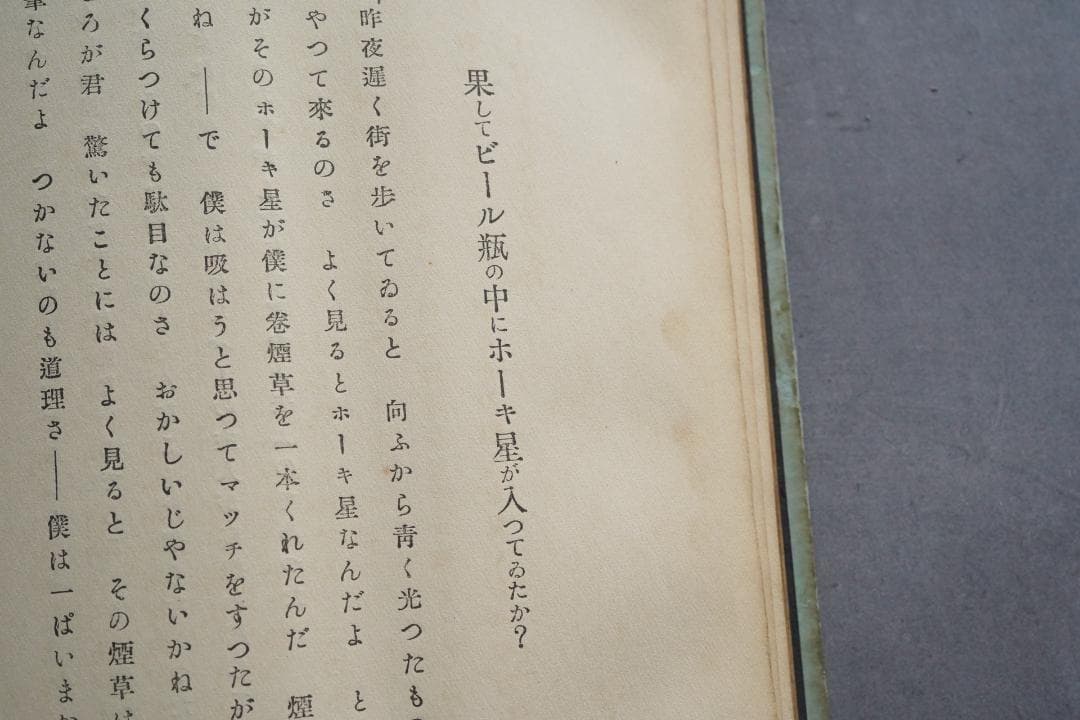 果してビール瓶の中にホーキ星が入つてゐたか?
昨夜遅く街を歩いてゐると　向ふから青く光つたも
やつて來るのさ　よく見るとホーキ星なんだよ　と
がそのホーキ星が僕に巻煙草を一本くれたんだ　煙
ね　――で　僕は吸はうと思つてマッチをすつたが
くらつけても駄目なのさ　おかしいじやないかね
ろが君　驚いたことには　よく見ると　その煙草は
筆なんだよ　つかないのも道理さ――僕は一ぱいまか